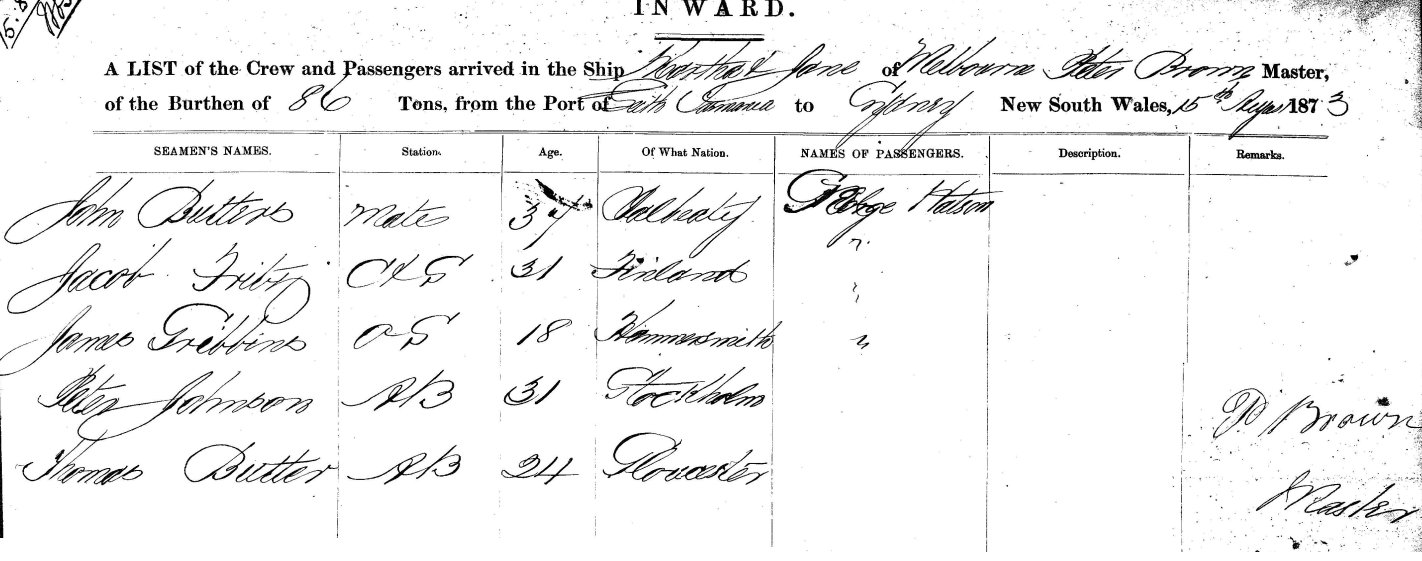 INWARD.
A LIST of the Crew and Passengers arrived in the Ship Martha & Jane of Melbourne Peter Brown Master,
of the Burthen of 86 Tons, from the Port of Tasmania to Sydney New South Wales, 15th 1873
SEAMEN'S NAMES. Station. Age. Of What Nation. NAMES OF PASSENGERS. Description. Remarks.
John Butters Mate 37 Dalbeaty George
Jacob Fritz C & S 31 Finland
James Gribbins OS 18 Hammersmith
Peter Johnson AB 31 Stockholm
P Brown
Thomas Butter AB 24 Gloucester
Master